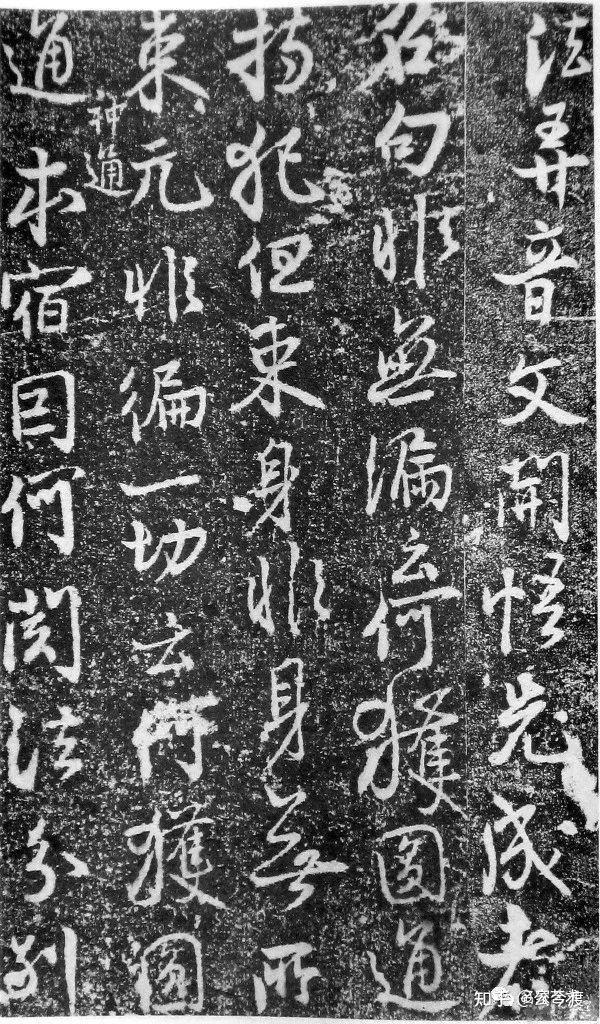 法弄音文開悟先成者
名句非無漏云何獲圓通
持犯但束身非身無所
束元非徧一切云何獲圓
通本宿因何関法分別
神通
知乎